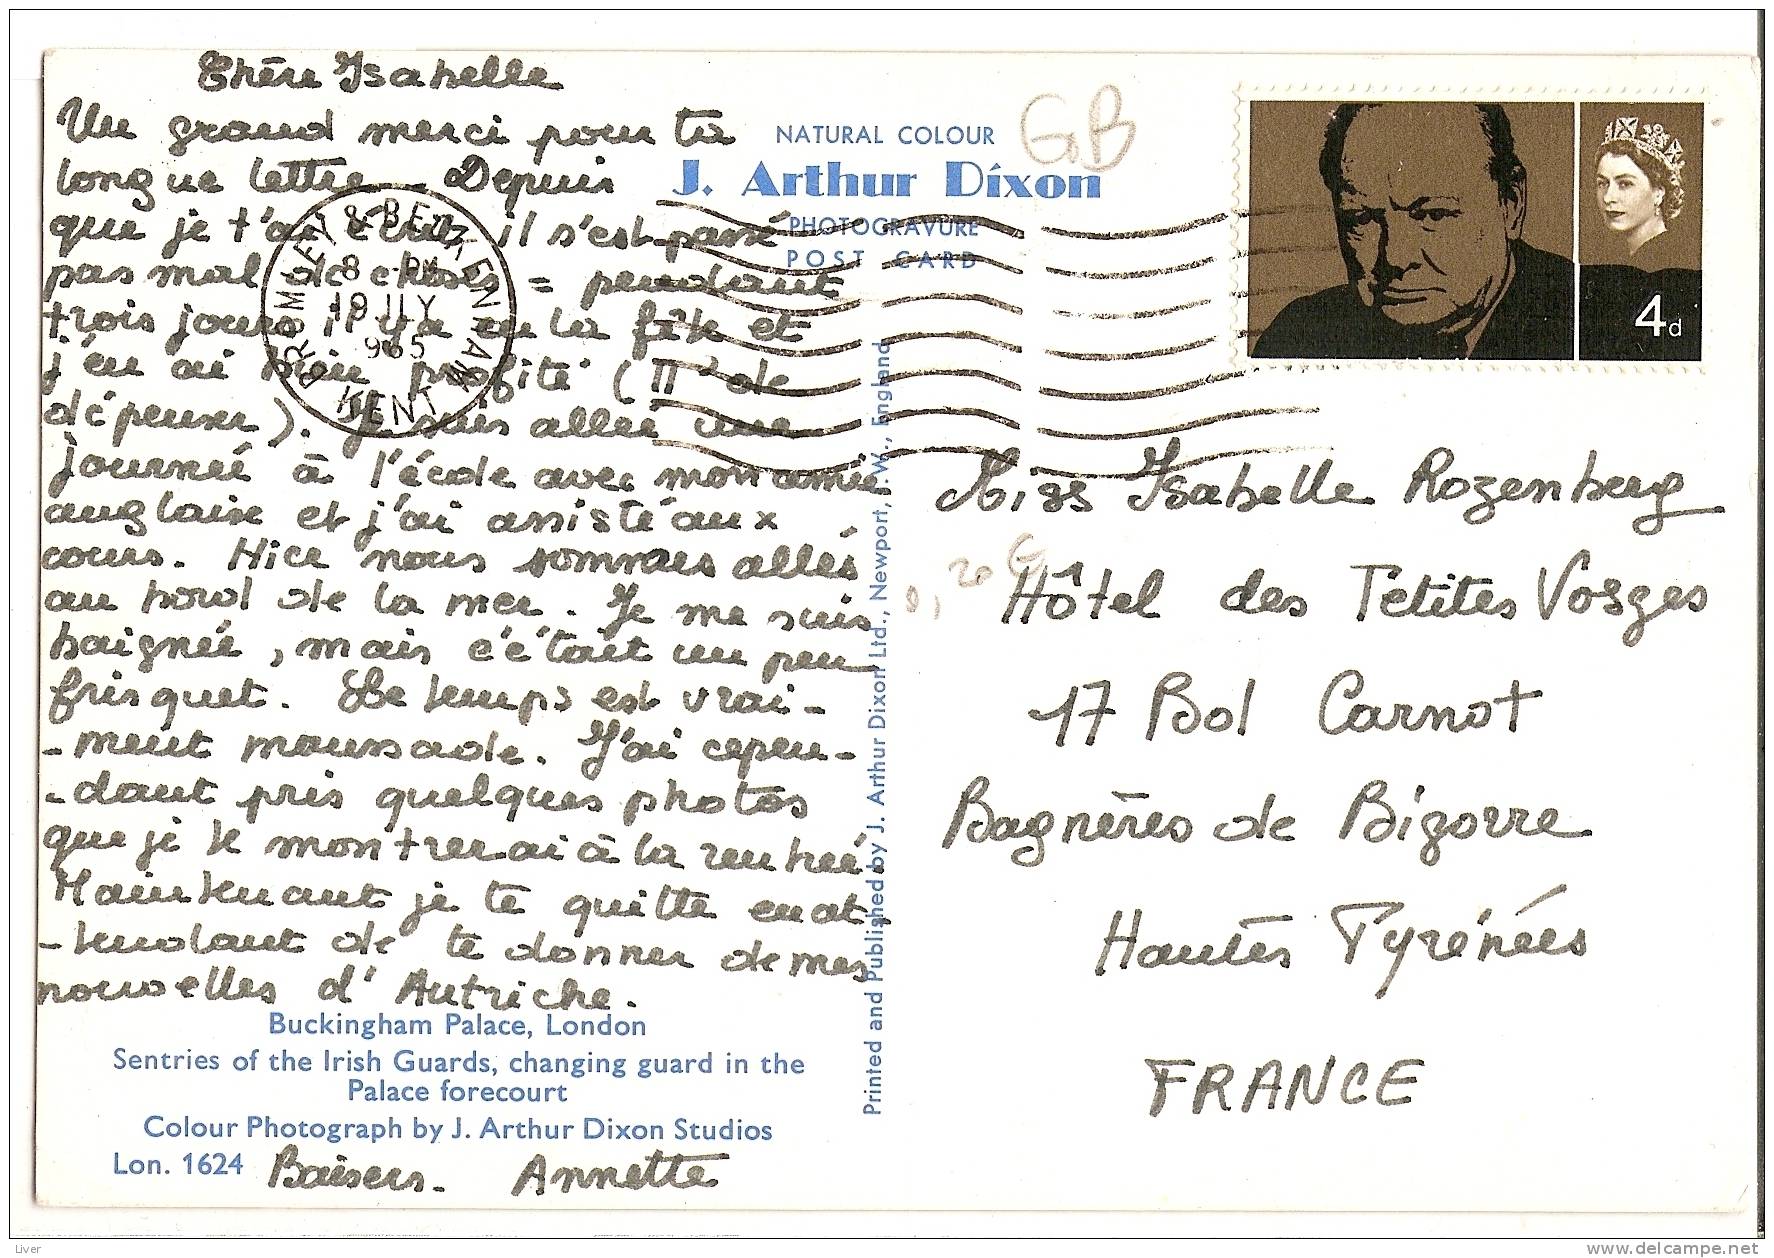 Chère Isabelle
Un grand merci pour ta
longue lettre. Depuis
que je t'ai écrit, il s'est passé
pas mal de choses = pendant
trois jours il y a eu la fête et
j'en ai bien profité ( de
dépenser). Je suis allée une
journée à l'école avec mon amie
anglaise et j'ai assisté aux
cours. Hier nous sommes allés
au bord de la mer. Je me suis
baignée, mais c'était un peu
frisquet. Le temps est vrai-
-ment maussade. J'ai cepen-
-dant pris quelques photos
que je te montrerai à la rentrée.
Maintenant je te quitte en at-
-tendant de te donner de mes
nouvelles d'Autriche.
Baisers - Annette
Buckingham Palace, London
Sentries of the Irish Guards, changing guard in the
Palace forecourt
Colour Photograph by J. Arthur Dixon Studios
Lon. 1624
NATURAL COLOUR
J. Arthur Dixon
PHOTOGRAVURE
POST CARD
Printed and Published by J. Arthur Dixon Ltd., Newport, I.W., England
GB
BROMLEY & BECKENHAM
8 - PM
19 JLY
1965
KENT
4d
Miss Isabelle Rozenberg
Hôtel des Petites Vosges
17 Bol Carnot
Bagnères de Bigorre
Hautes Pyrénées
FRANCE
Liver
www.delcampe.net